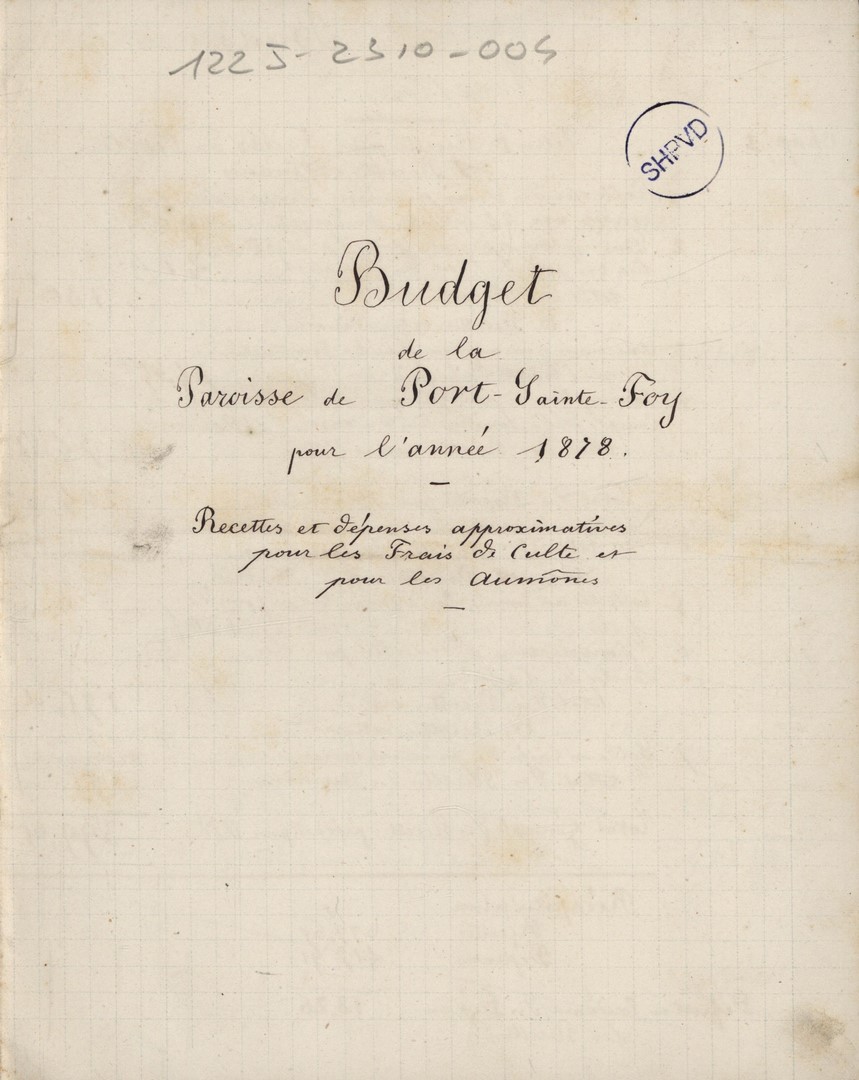 122J-2310-004
SHPVD
Budget
de la
Paroisse de Port-Sainte-Foy
pour l'année 1878.
Recettes et dépenses approximatives
pour les Frais de Culte et
pour les aumônes